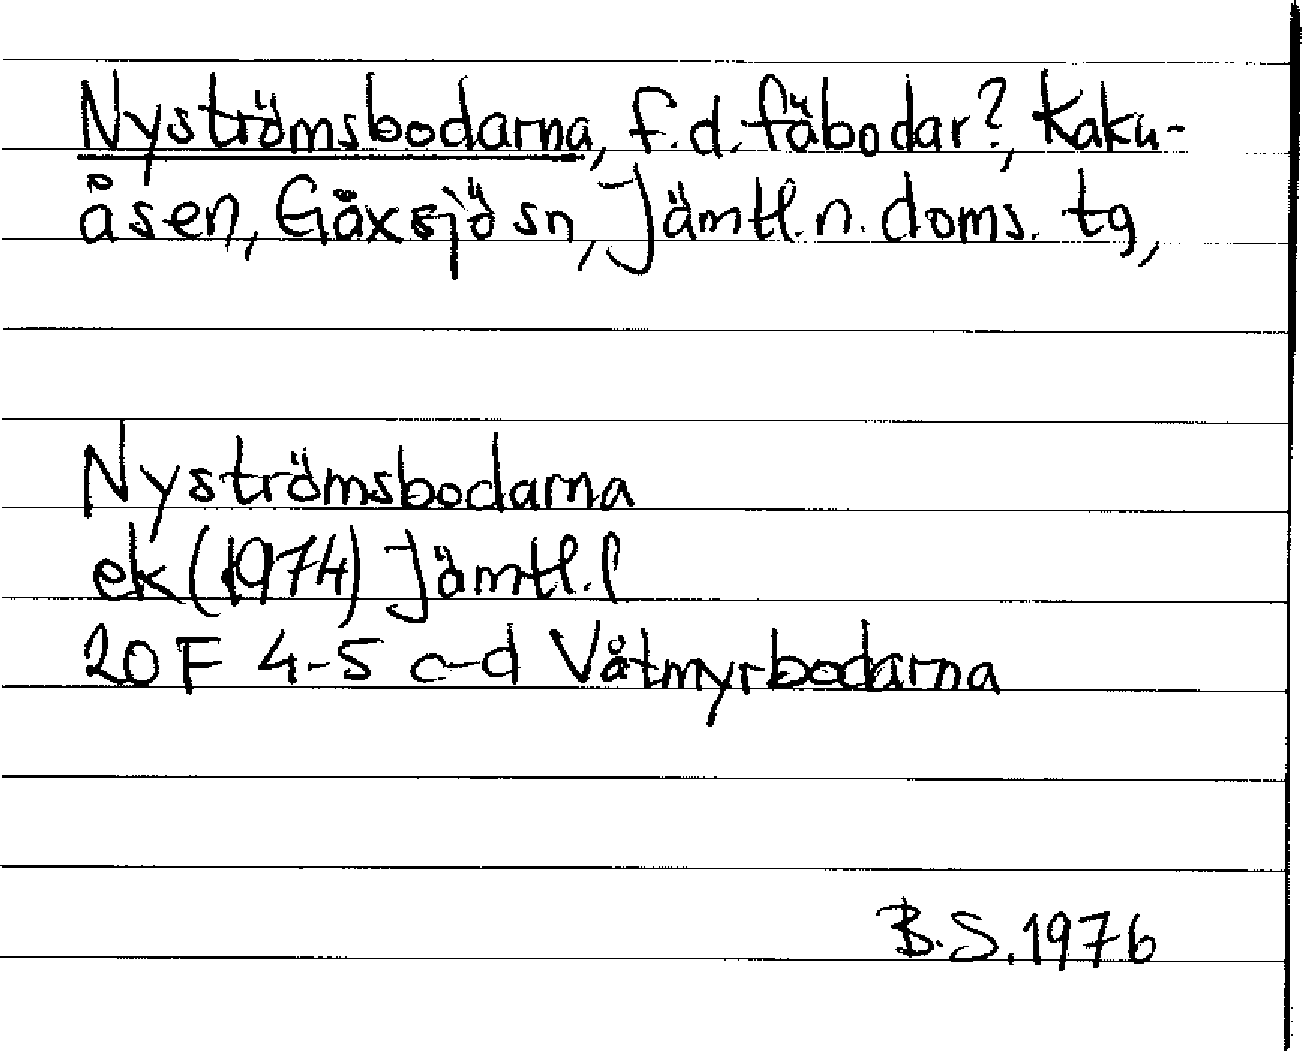 Nyströmsbodarna, f.d. fäbodar?, Kaku-
åsen, Gåxsjö sn, Jämtl. n. doms. tg,
Nyströmsbodarna
ek (1974) Jämtl. l
20 F 4-5 c-d Våtmyrbodarna
B.S. 1976